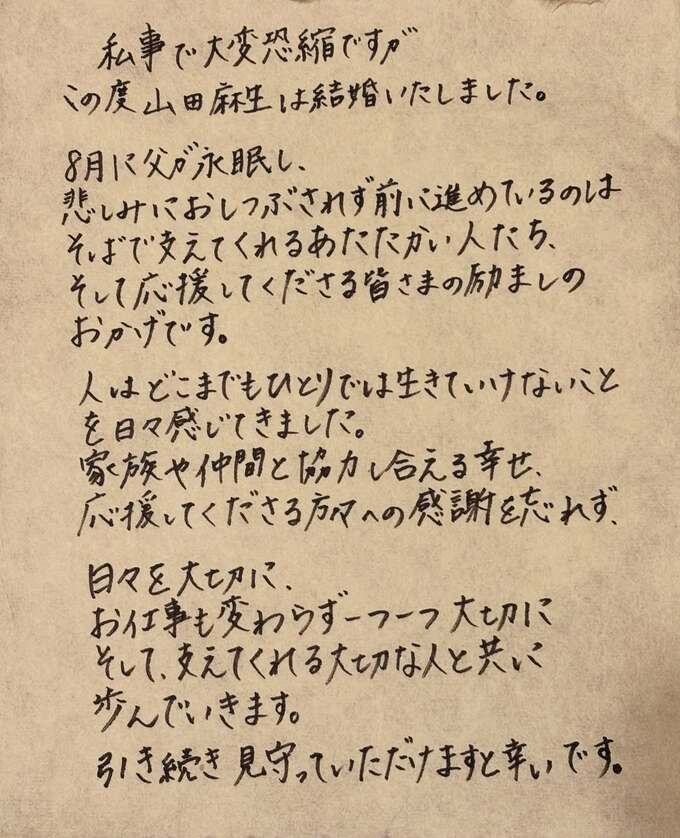 私事で大変恐縮ですが
この度山田麻生は結婚いたしました。
8月に父が永眠し、
悲しみにおしつぶされず前に進めているのは
そばで支えてくれるあたたかい人たち、
そして応援してくださる皆さまの励ましの
おかげです。
人はどこまでもひとりでは生きていけないこと
を日々感じてきました。
家族や仲間と協力し合える幸せ、
応援してくださる方々への感謝を忘れず、
日々を大切に、
お仕事も変わらず一つ一つ大切に
そして、支えてくれる大切な人と共に
歩んでいきます。
引き続き見守っていただけますと幸いです。